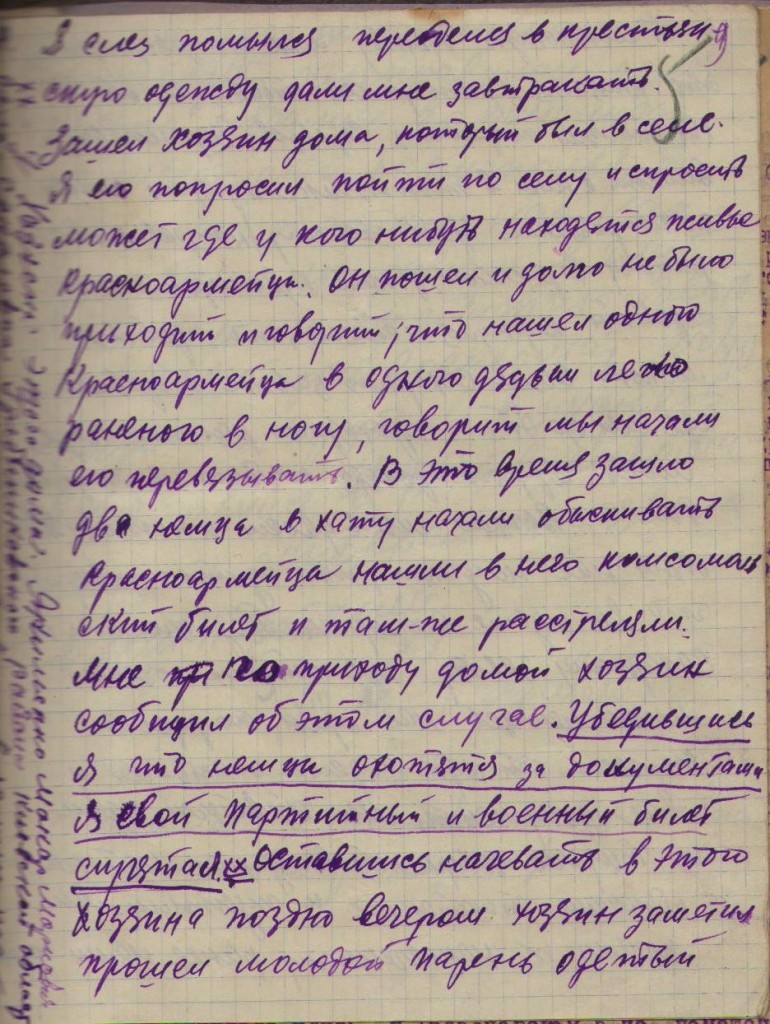 Я слез помылся переоделся в крестьян
скую одежду дали мне завтракать.
Зашел хозяин дома, который был в селе.
Я его попросил пойти по селу и спросить
может где у кого нибуть находется живые
красноармейцы. Он пошел и долго не было
приходит и говорит, что нашел одного
Красноармейца в одного дядьки легко
раненого в ногу, говорит мы начали
его перевязывать. В это время зашло
два немца в хату начали обыскивать
красноармейца нашли в него комсомоль
ский билет и там-же расстреляли.
Мне по приходу домой хозяин
сообщил об этом случае. Убедившись
я что немцы охотятся за документами
я свой партийный и военный билет
спрятал. хх Оставшись начевать в этого
хозяина поздно вечером хозяин заметил
прошел молодой парень одетый
хх этого дома, Макар
района Киевской област
9
5